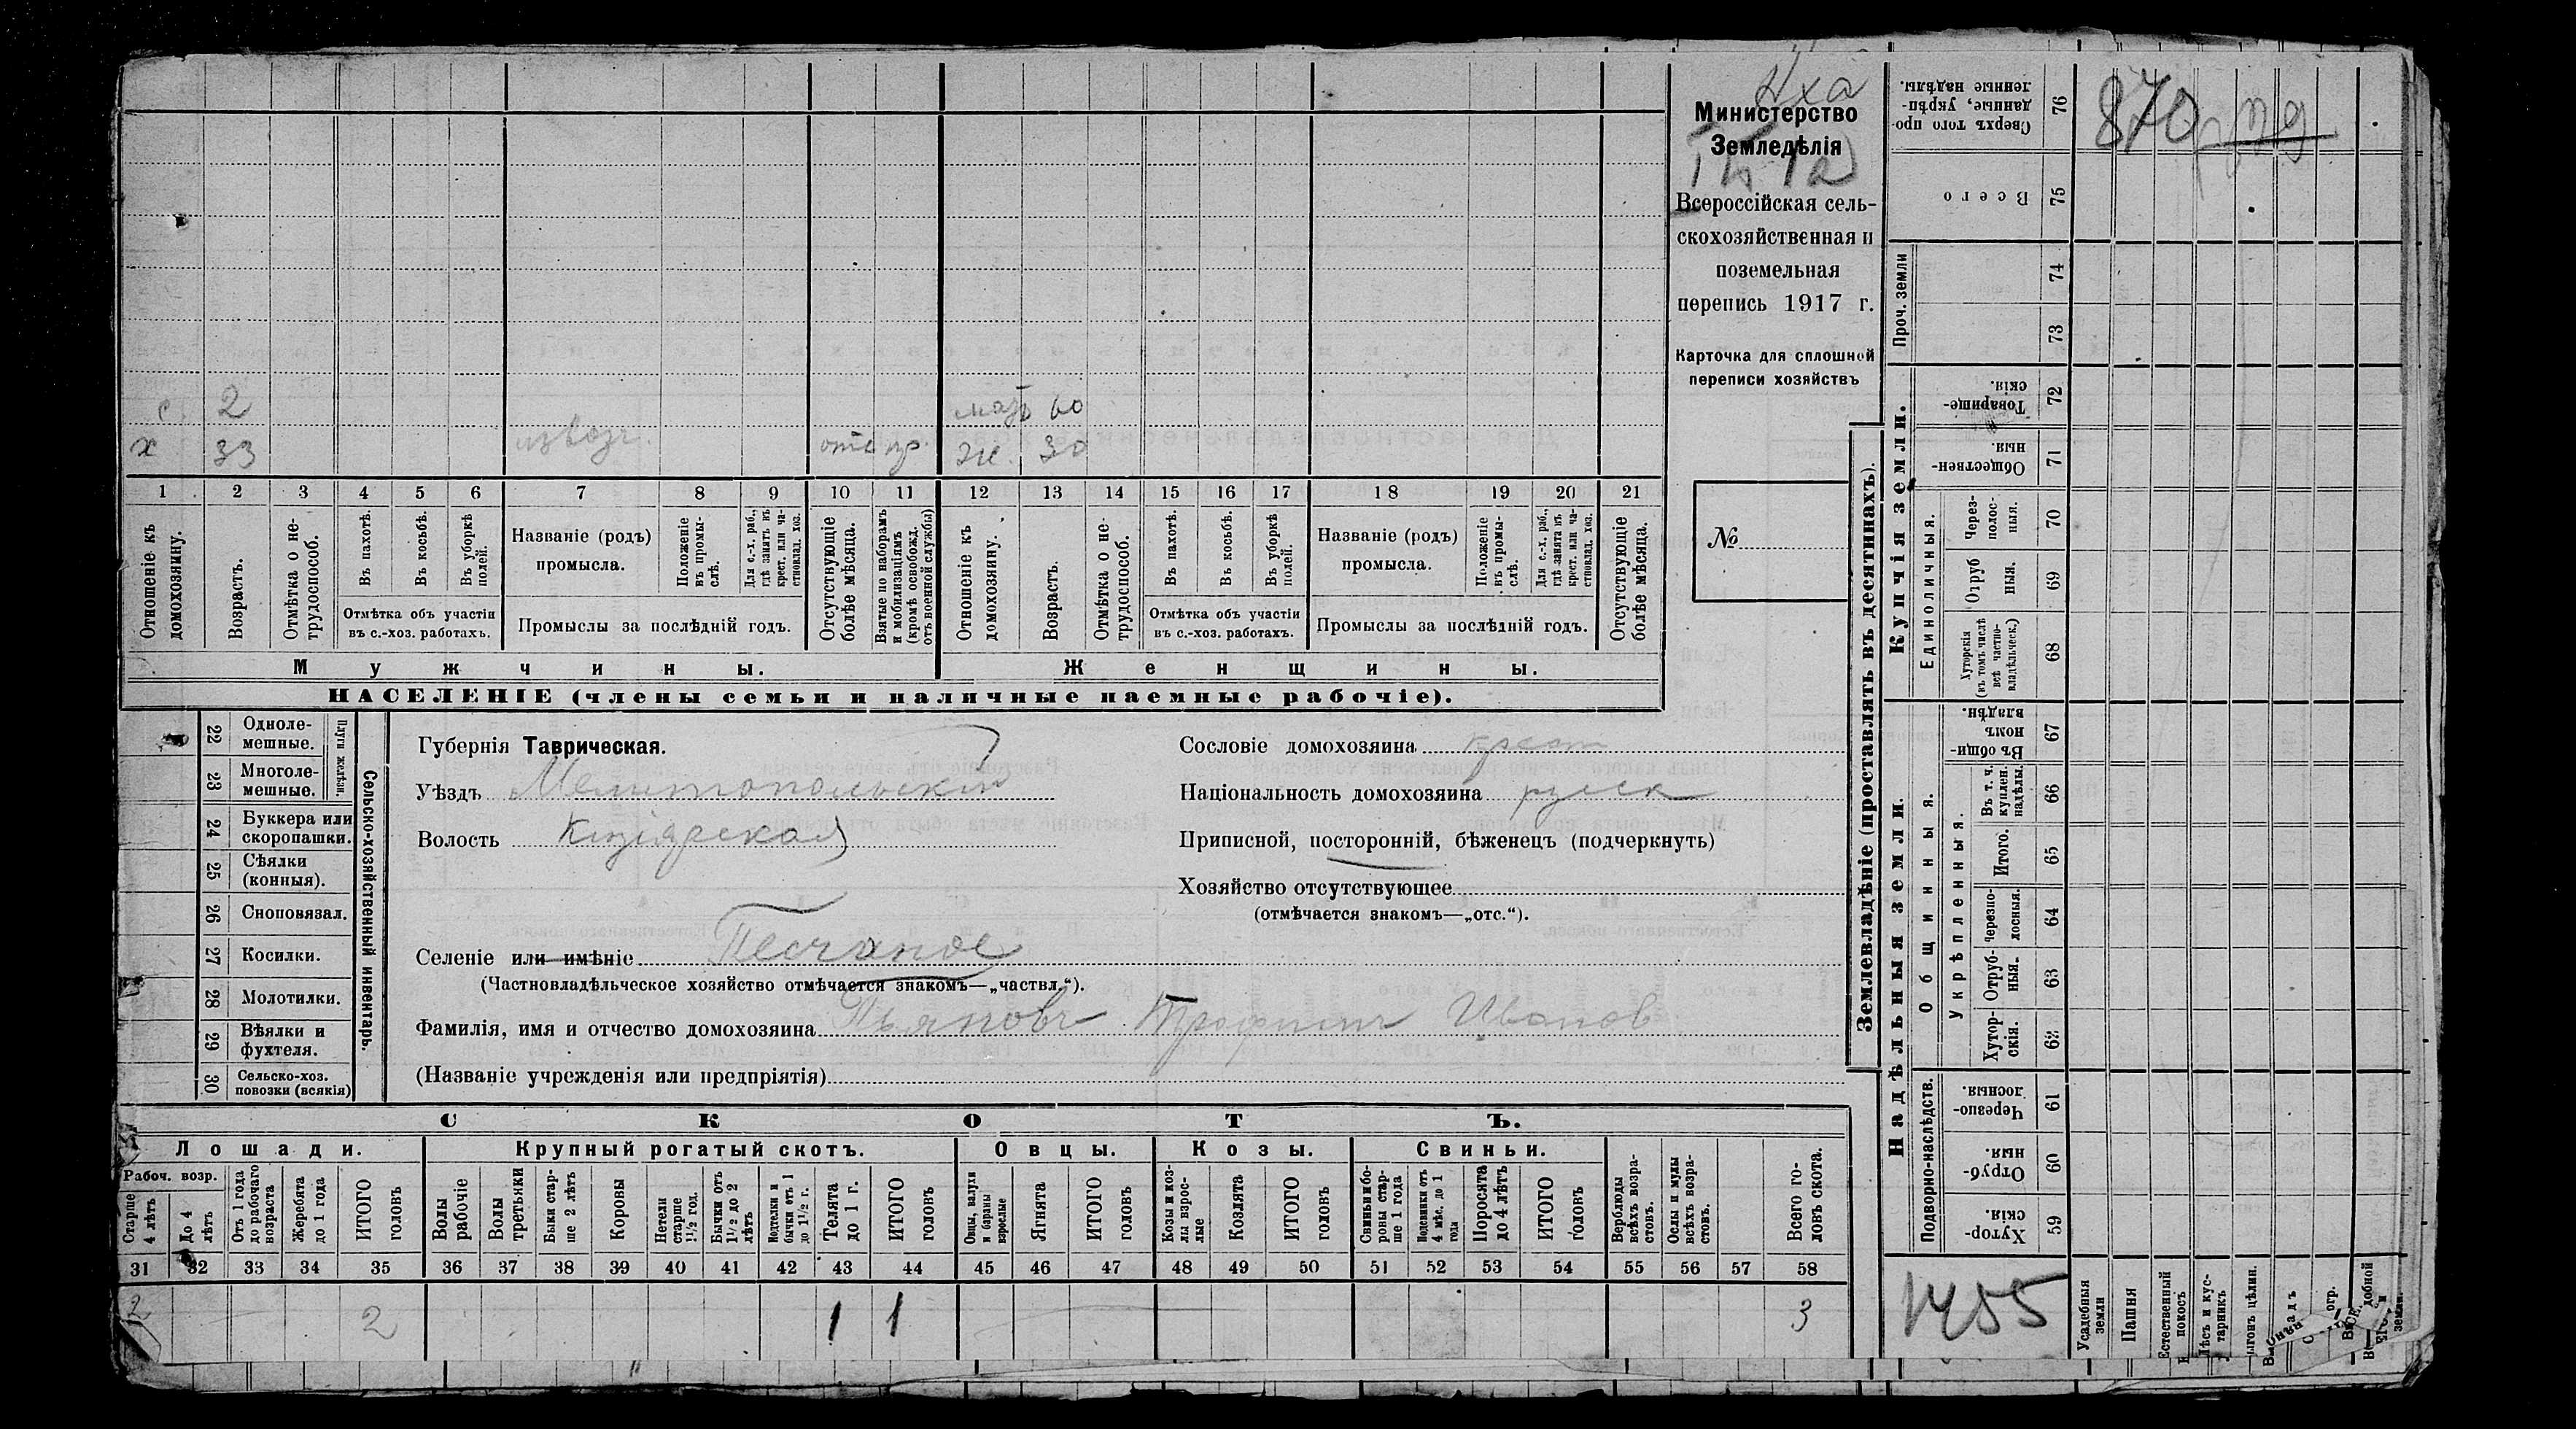 с. 2 мать 60
х 33 извоз. отс пр. ж. 30
1 2 3 4 5 6 7 8 9 10 11 12 13 14 15 16 17 18 19 20 21
Отношеніе къ домохозяину.
Возрастъ.
Отмѣтка о не-
трудоспособ.
Въ пахотѣ.
Въ косьбѣ.
Въ уборкѣ полей.
Отмѣтка объ участіи
въ с.-хоз. работахъ.
Названіе (родъ)
промысла.
Положеніе въ промы-
слѣ.
Для с.-х. раб., гдѣ занятъ въ крест. или ча-
стновлад. хоз.
Промыслы за послѣдній годъ.
Отсутствующіе
болѣе мѣсяца.
Взятые по наборамъ
и мобилизаціямъ
(кромѣ освобожд.
отъ военной службы)
Отношеніе къ
домохозяину.
Возрастъ.
Отмѣтка о не-
трудоспособ.
Въ пахотѣ.
Въ косьбѣ.
Въ уборкѣ полей.
Отмѣтка объ участіи
въ с.-хоз. работахъ.
Названіе (родъ)
промысла.
Положеніе въ промы-
слѣ.
Для с.-х. раб., гдѣ занята въ крест. или ча-
стновлад. хоз.
Промыслы за послѣдній годъ.
Отсутствующіе
болѣе мѣсяца.
Мужчины. Женщины.
НАСЕЛЕНІЕ (члены семьи и наличные наемные рабочіе).
Министерство
Земледѣлія
Всероссійская сель-
скохозяйственная и
поземельная
перепись 1917 г.
Карточка для сплошной
переписи хозяйствъ
№
22 Одноле-
мешные.
23 Многоле-
мешные.
Плуги желѣзн.
24 Буккера или
скоропашки.
25 Сѣялки
(конныя).
26 Сноповязал.
27 Косилки.
28 Молотилки.
29 Вѣялки и
фухтеля.
30 Сельско-хоз.
повозки (всякія)
Сельско-хозяйственный инвентарь.
Губернія Таврическая.
Уѣздъ Мелитопольскій
Волость Кизіярская
Селеніе или имѣніе Песчаное
(Частновладѣльческое хозяйство отмѣчается знакомъ—„частвл.“).
Фамилія, имя и отчество домохозяина Пьяновъ Трофимъ Иванов
(Названіе учрежденія или предпріятія)
Сословіе домохозяина крест
Національность домохозяина русск
Приписной, посторонній, бѣженецъ (подчеркнуть)
Хозяйство отсутствующее
(отмѣчается знакомъ—„отс.“).
СКОТЪ.
Лошади. Крупный рогатый скотъ. Овцы. Козы. Свиньи.
Рабоч. возр.
Старше
4 лѣтъ
До 4
лѣтъ
Отъ 1 года
до рабочаго
возраста
Жеребята
до 1 года
ИТОГО
головъ
Волы
рабочіе
Волы
третьяки
Быки стар-
ше 2 лѣтъ
Коровы
Нетели
старше
1½ год.
Бычки отъ
1½ до 2
лѣтъ
Подтелки и
бычки отъ 1
до 1½ г.
Телята
до 1 г.
ИТОГО
головъ
Овцы, валухи
и бараны
взрослые
Ягнята
ИТОГО
головъ
Козы и коз-
лы взрос-
лые
Козлята
ИТОГО
головъ
Свиньи и бо-
ровы стар-
ше 1 года
Подсвинки отъ
4 мѣс. до 1
года
Поросята
до 4 лѣтъ
ИТОГО
головъ
Верблюды
всѣхъ возра-
стовъ.
Ослы и мулы
всѣхъ возра-
стовъ.
Всего го-
ловъ скота.
31 32 33 34 35 36 37 38 39 40 41 42 43 44 45 46 47 48 49 50 51 52 53 54 55 56 57 58
2 2 1 1 3
Землевладѣніе (проставлять въ десятинахъ).
Купчія земли.
Надѣльныя земли.
870
76 Сверхъ того про-
данные, укрѣп-
ленные надѣлы.
75 Всего
Проч. земли
74
73
72 Товарище-
скія.
71 Обществен-
ныя.
Единоличныя.
70 Через-
полос-
ныя.
69 Отруб
ныя.
68 Хуторскія
(въ томъ числѣ
всѣ частно-
владѣльческ.)
Общинныя.
67 Въ общин-
номъ
владѣн.
Укрѣпленныя.
66 Въ т. ч.
куплен.
надѣлы.
65 Итого.
64 Черезпо-
лосныя.
63 Отруб-
ныя.
62 Хутор-
скія.
Подворно-наслѣдств.
61 Черезпо-
лосныя.
60 Отруб-
ныя.
59 Хутор-
скія.
1455
Усадебныя
земли
Пашня
Естественный
покосъ